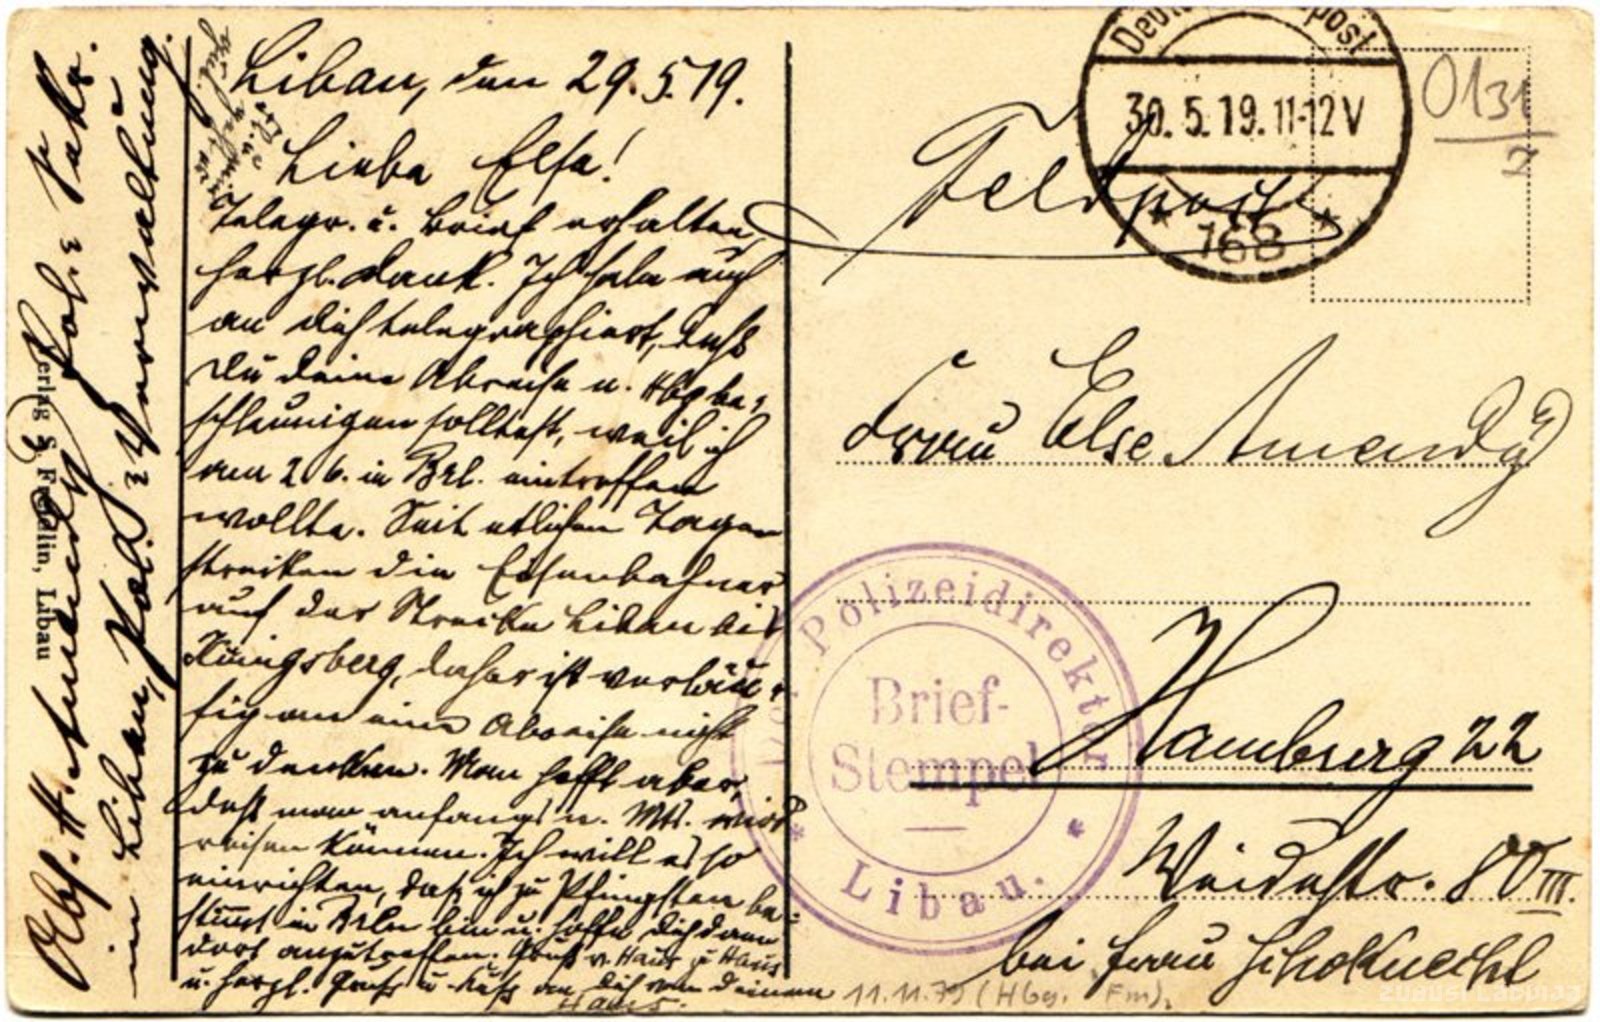 Libau, den 29.5.19.
Liebe Else!
Telegr. u. Brief erhalten,
herzl. Dank. Ich habe auch
an dich telegraphiert, daß
Du deine Abreise n. Hbg be-
schleunigen solltest, weil ich
am 2.6. in Brl. eintreffen
wollte. Seit etlichen Tagen
streiken die Eisenbahner
auf der Strecke Libau bis
Königsberg, daher ist vorläu-
fig an eine Abreise nicht
zu denken. Man hofft aber,
daß man anfangs n. Mts. wird
reisen können. Ich will es so
einrichten, daß ich zu Pfingsten be-
stimmt in Brln bin u. hoffe dich dann
dort anzutreffen. Gruß v. Haus zu Haus
u. herzl. Gruß u. Kuß an Dich von deinem
Hans.
Abs. H. Amendy
in Libau, Pol. Verwaltung.
Verlag S. Freidlin, Libau
Deutsche Feldpost
30.5.19.11-12V
* 168 *
0131
Feldpost
Frau Else Amendy
Hamburg 22
Weidestr. 80 III.
bei Frau Schoknecht
Polizeidirektor
Brief-
Stempel
* Libau. *
11.11.79 (Hbg. Fm).